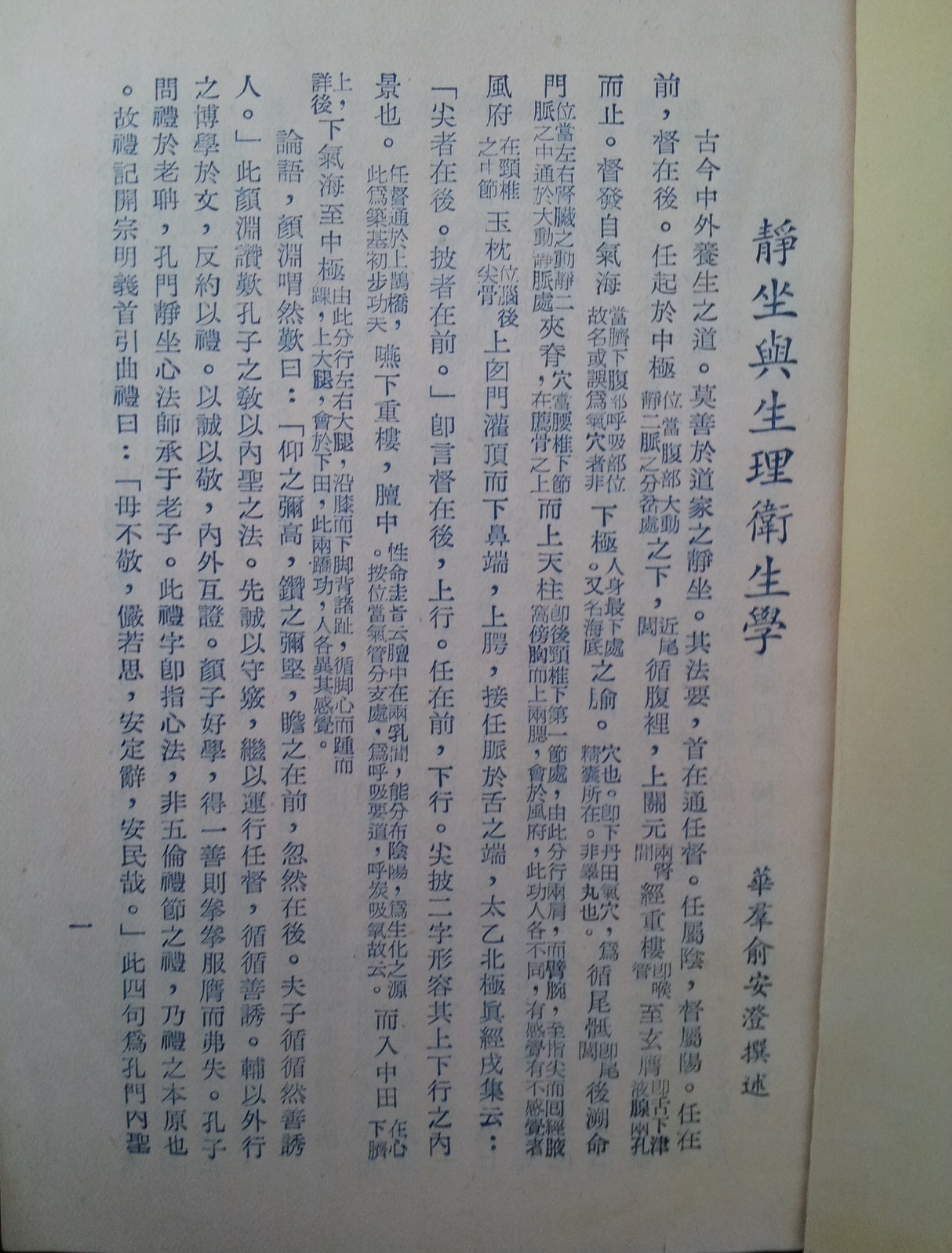 靜坐與生理衛生學
華羣俞安澄撰述
古今中外養生之道。莫善於道家之靜坐。其法要，首在通任督。任屬陰，督屬陽。任在
前，督在後。任起於中極位當腹部大動靜二脈之分岔處之下，近尾閭循腹裡，上關元兩腎間經重樓卽喉管至玄膺卽舌下津液腺兩孔
而止。督發自氣海當臍下腹部呼吸部位故名或誤爲氣穴者非下極人身最下處。又名海底之俞。穴也。卽下丹田氣穴，爲精囊所在。非睪丸也。循尾骶卽尾閭後溯命
門位當左右腎臟之動靜二脈之中通於大動靜脈處夾脊，穴當腰椎下節，在薦骨之上而上天柱卽後頸椎下第一節處，由此分行兩肩，而臂腕，至指尖而回經腋窩傍胸而上兩腮，會於風府，此功人各不同，有感覺有不感覺者
風府在頸椎之中節玉枕位腦後尖骨上囟門灌頂而下鼻端，上腭，接任脈於舌之端，太乙北極眞經戌集云：
「尖者在後。披者在前。」卽言督在後，上行。任在前，下行。尖披二字形容其上下行之內
景也。任督通於上鵲橋，此爲築基初步功夫嚥下重樓，膻中性命圭旨云膻中在兩乳間，能分布陰陽，爲生化之源。按位當氣管分支處，爲呼吸要道，呼炭吸氧故云。而入中田在心下臍
上，詳後下氣海至中極由此分行左右大腿，沿膝而下脚背諸趾，循脚心而踵而踝，上大腿，會於下田，此兩蹻功，人各異其感覺。
論語，顏淵喟然歎曰：「仰之彌高，鑽之彌堅，瞻之在前，忽然在後。夫子循循然善誘
人。」此顏淵讚歎孔子之敎以內聖之法。先誠以守竅，繼以運行任督，循循善誘。輔以外行
之博學於文，反約以禮。以誠以敬，內外互證。顏子好學，得一善則拳拳服膺而弗失。孔子
問禮於老聃，孔門靜坐心法師承于老子。此禮字卽指心法，非五倫禮節之禮，乃禮之本原也
。故禮記開宗明義首引曲禮曰：「毋不敬，儼若思，安定辭，安民哉。」此四句爲孔門內聖
一